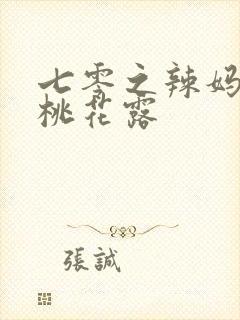 七零之辣妈
桃花露
張誠